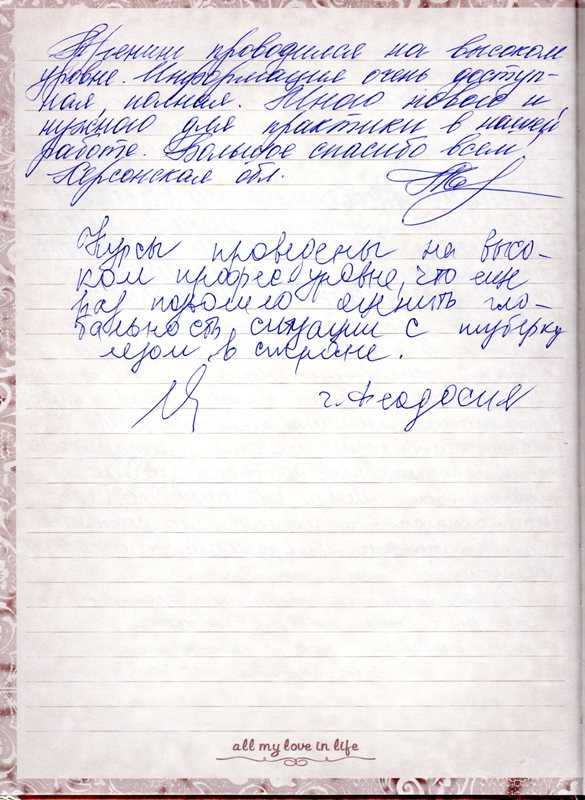 Тренинг проводился на высоком
уровне. Информация очень доступ-
ная, полная. Много нового и
нужного для практики в нашей
работе. Большое спасибо всем,
Херсонская обл.
Курсы проведены на высо-
ком професс. уровне, что еще
раз позволило оценить гло-
бальность ситуации с туберку
лезом в стране.
г. Феодосия
all my love in life